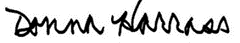 Donna Harrass